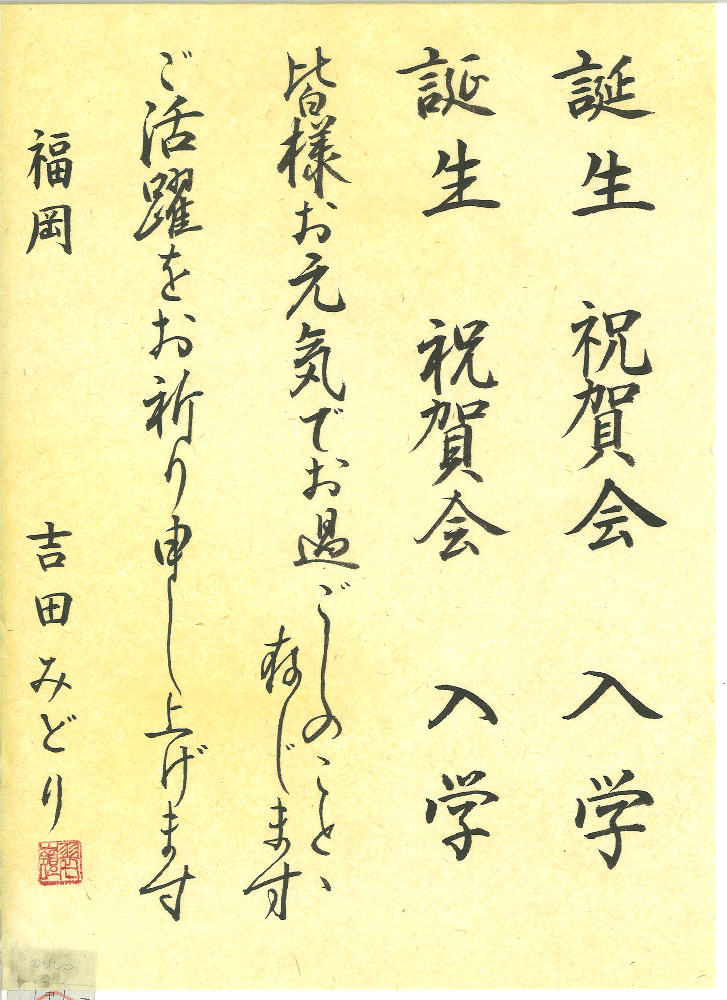 誕生 祝賀会 入学
誕生 祝賀会 入学
皆様お元気でお過ごしのことと、
存じます
ご活躍をお祈り申し上げます
福岡 吉田みどり